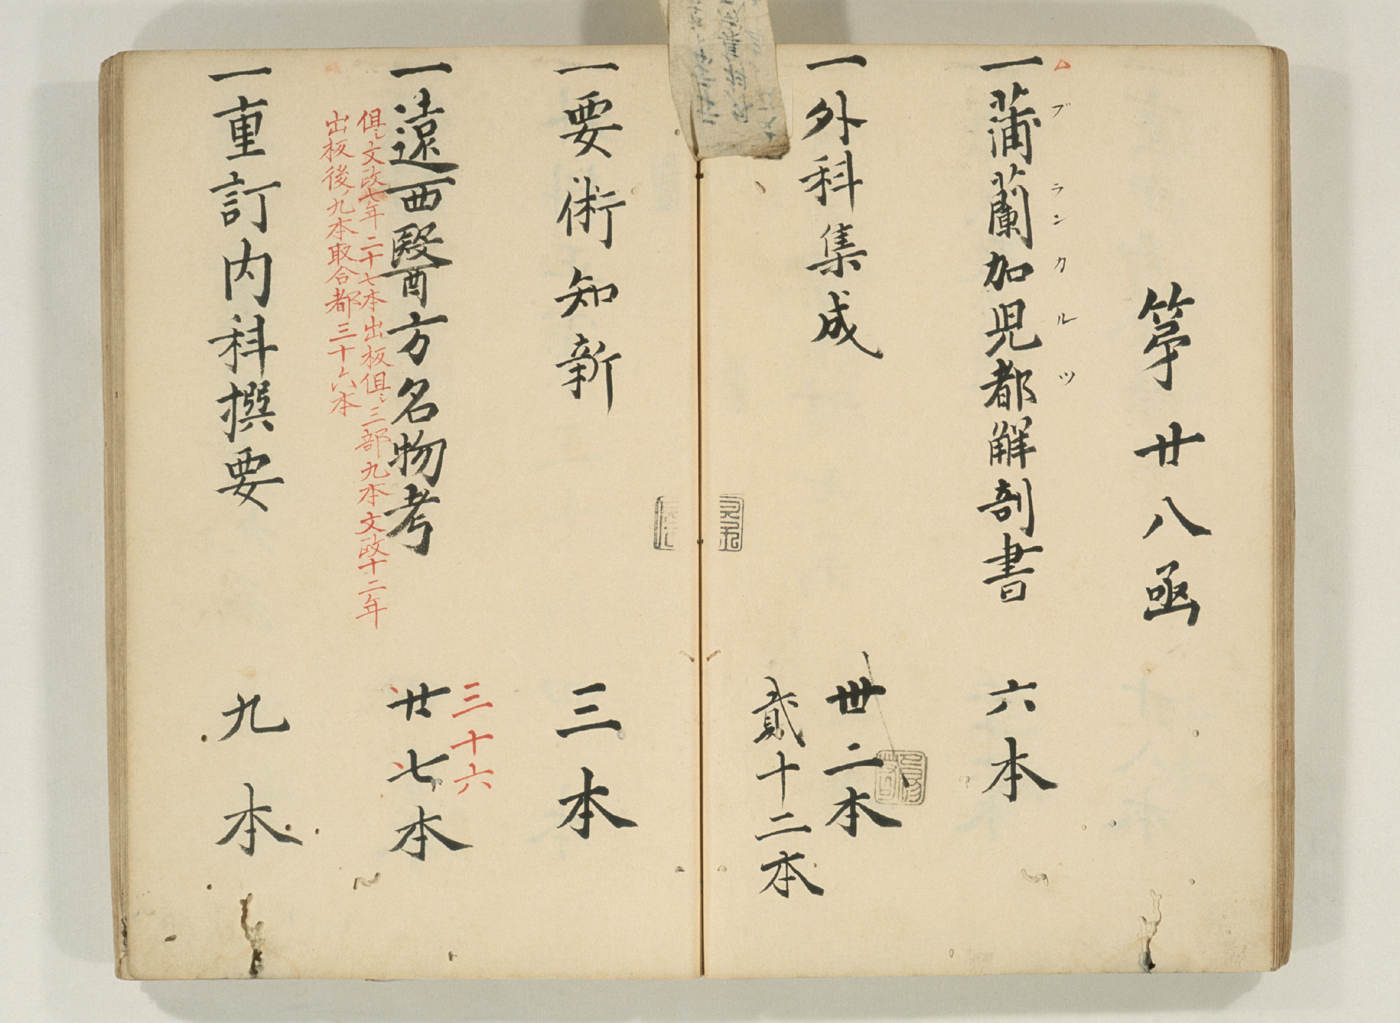 第廿八凾
ブランカルツ
一蒲蘭加児都解剖書 六本
一外科集成 卅二本
貳十二本
一要術知新 三本
三十六
一遠西毉方名物考 廿七本
但シ文政七年二十七本出板但シ三部九本文政十二年
出板後ノ九本取合都三十六本
一重訂内科撰要 九本